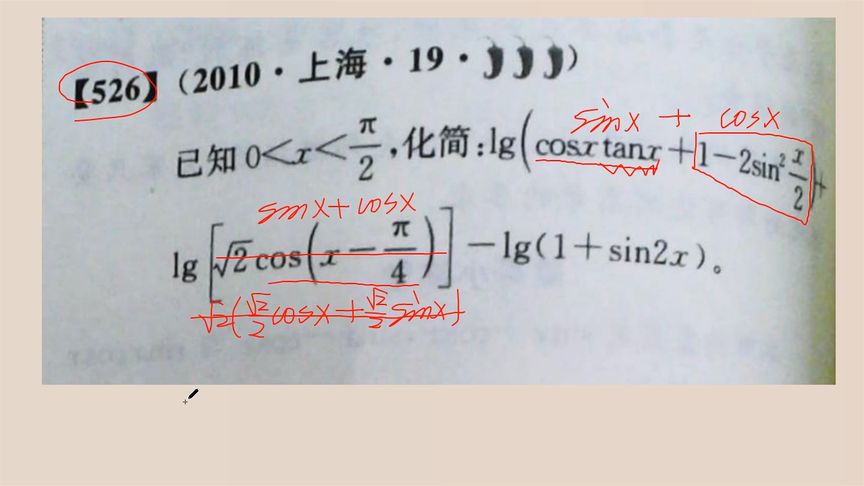 【526】(2010·上海·19·)))
sinx + cosx
已知 0<x<π/2,化简:lg(cosxtanx+1-2sin²x/2)+
sinx+cosx
lg[√2cos(x-π/4)]-lg(1+sin2x)。
√2(√2/2cosx+√2/2sinx)